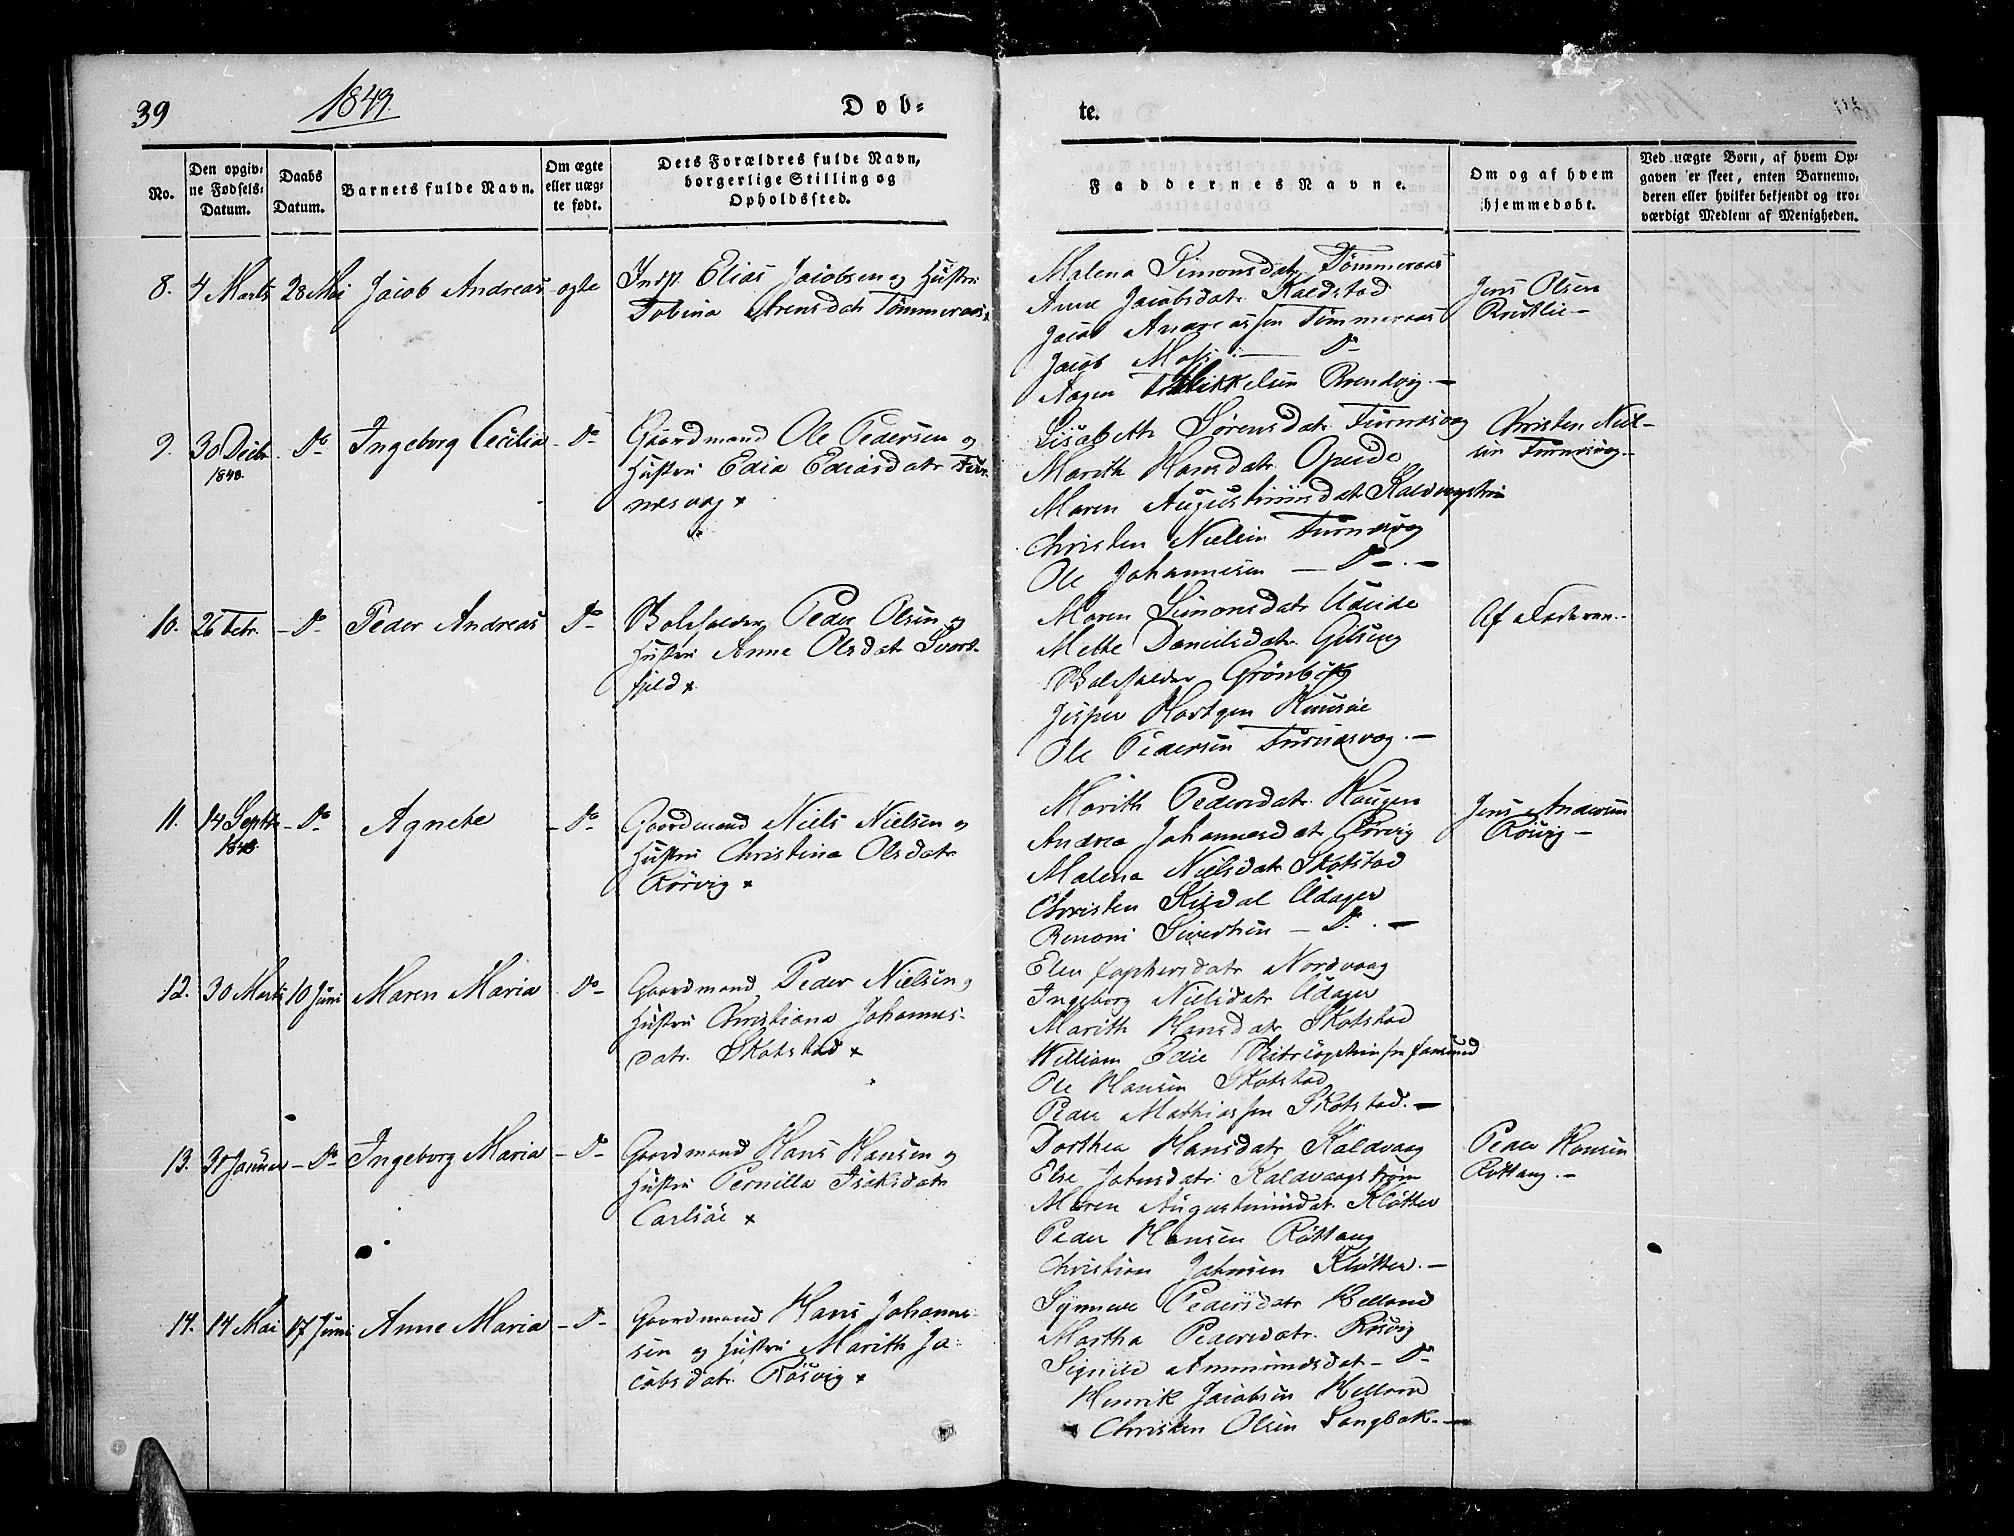 39
1849.
Døb-
te.
No.
Den opgiv-
ne Fødsels-
Datum.
Daabs
Datum.
Barnets fulde Navn.
Om ægte
eller uæg-
te født.
Dets Forældres fulde Navn,
borgerlige Stilling og
Opholdssted.
Faddernes Navne.
Om og af hvem
hjemmedøbt.
Ved uægte Børn, af hvem Op-
gaven er skeet, enten Barnemo-
deren eller hvilket bekjendt og tro-
værdigt Medlem af Menigheden.
8. 4 Marts 28 Mai Jacob Andreas ægte
Indst. Elias Jacobsen og Hustru
Tobina Arensdatr Tømmeraas
Malena Simonsdatr Tømmeraas
Anne Jacobsdatr Kaldstad
Jacob Andreassen Tømmeraas
Jacob D-
Mikkelsen Brendvig.
Jens Olsen
9. 30 Decbr 1848. - Do Ingeborg Cecilia - Do
Gaardmand Ole Pedersen og
Hustru Edia Eliasdatr Fur-
nesvag
Lisabeth Sørensdatr Furnesvag
Marith Hansdatr Opeide
Maren Augustinusdatr Kaldvagstrøm
Christen Nielsen Furnesvag
Ole Johannesen - Do -
Christen Niel-
sen Furnesvag -
10. 26 Febr. - Do Peder Andreas Do
Peder Olsen og
Hustru Anne Olsdatr Svart-
fjeld
Maren Simonsdatr Udeide
Mette Danielsdatr
Jesper Hartgen
Ole Pedersen Furnesvag. -
Af Faderen.
11. 14 Septbr 1848 - Do Agnete - Do
Gaardmand Niels Nielsen og
Hustru Christina Olsdatr
Rørvig
Marith Pedersdatr. Haugen
Andrea Johannesdatr Rørvig
Malena Nielsdatr Skotstad
Christen Udager
Benoni Sivertsen - Do. -
Jens Andersen
Røsvig -
12. 30 Marts 10 Juni Maren Maria Do
Gaardmand Peder Nielsen og
Hustru Christiana Johannes-
datr. Skotstad
Elen Nordvaag
Ingeborg Nielsdatr Udager
Marith Hansdatr Skotstad
William Edie
Ole Hansen Skotstad
Peder Mathiassen Skotstad. -
13. 31 Januar - Do Ingeborg Maria - Do
Gaardmand Hans Hansen og
Hustru Pernilla Isaksdatr
Carlsøe
Dorthea Hansdatr Kaldvaag
Else Johnsdatr Kaldvaagstrøm
Maren Augustinusdat. Kløtter
Peder Hansen Røttang
Christian Johnsen Kløtter. -
Peder Hansen
Røttang. -
14. 14 Mai 17 Juni Anne Maria - Do
Gaardmand Hans Johanne-
sen og Hustru Marith Ja-
cobsdatr. Røsvig
Synneve Pedersdatr Helland
Martha Pedersdatr. Røsvig
Signild Ammundsdat - Do
Henrik Jacobsen Helland
Christen Olsen Langbak. -